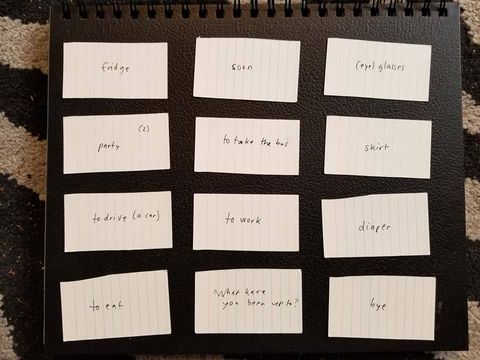 fridge
soon
(eye) glasses
(2)
party
to take the bus
skirt
to drive (a car)
to work
diaper
to eat
What have
you been up to?
bye